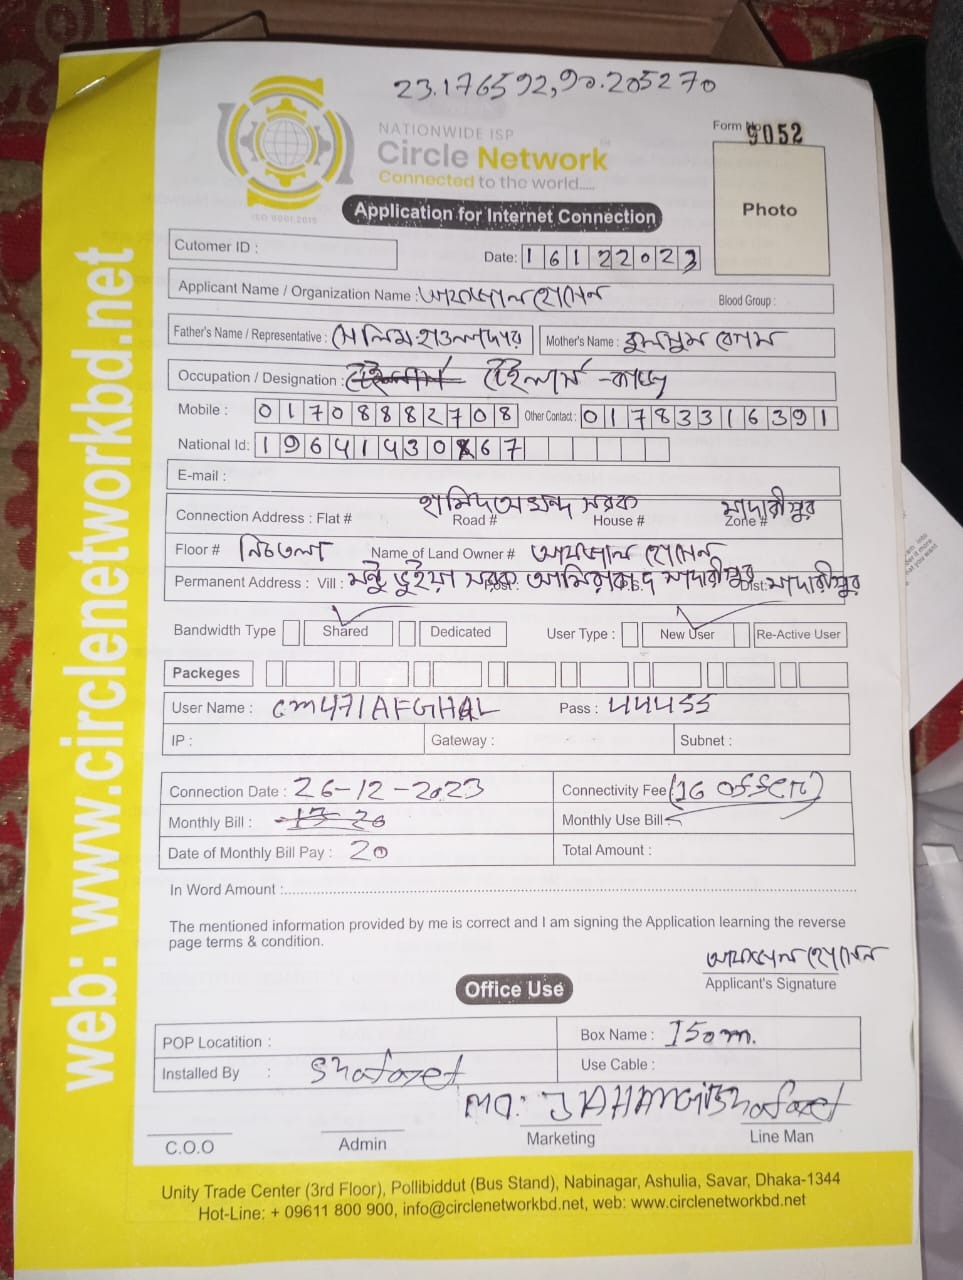 23.176592,90.205270
NATIONWIDE ISP
Circle Network
Connected to the world.....
ISO 9001:2015
Form No 9052
Photo
Application for Internet Connection
Cutomer ID :
Date: 16122023
Applicant Name / Organization Name : আফজাল হোসেন
Blood Group :
Father's Name / Representative : সেলিম হাওলাদার
Mother's Name : কুলসুম বেগম
Occupation / Designation :
Mobile : 01708882708 Other Contact : 01783316391
National Id: 1964143067
E-mail :
Connection Address : Flat # Road # House # Zone #
হামিদ আকন্দ সরক মাদারীপুর
Floor # নিচতলা Name of Land Owner # আফজাল হোসেন
Permanent Address : Vill : মন্টু ভূইয়া সরক আমিরাবাদ মাদারীপুর Dist: মাদারীপুর
Bandwidth Type Shared Dedicated User Type : New User Re-Active User
Packeges
User Name : cm471AFGHAL Pass : 44455
IP : Gateway : Subnet :
Connection Date : 26-12-2023 Connectivity Fee (16 offer)
Monthly Bill : Monthly Use Bill
Date of Monthly Bill Pay : 20 Total Amount :
In Word Amount :
The mentioned information provided by me is correct and I am signing the Application learning the reverse
page terms & condition.
আফজাল হোসেন
Applicant's Signature
Office Use
POP Locatition : Box Name : 150m.
Installed By : Shafayet Use Cable :
MD. JAHANGIR Shafayet
C.O.O Admin Marketing Line Man
Unity Trade Center (3rd Floor), Pollibiddut (Bus Stand), Nabinagar, Ashulia, Savar, Dhaka-1344
Hot-Line: + 09611 800 900, info@circlenetworkbd.net, web: www.circlenetworkbd.net
web: www.circlenetworkbd.net